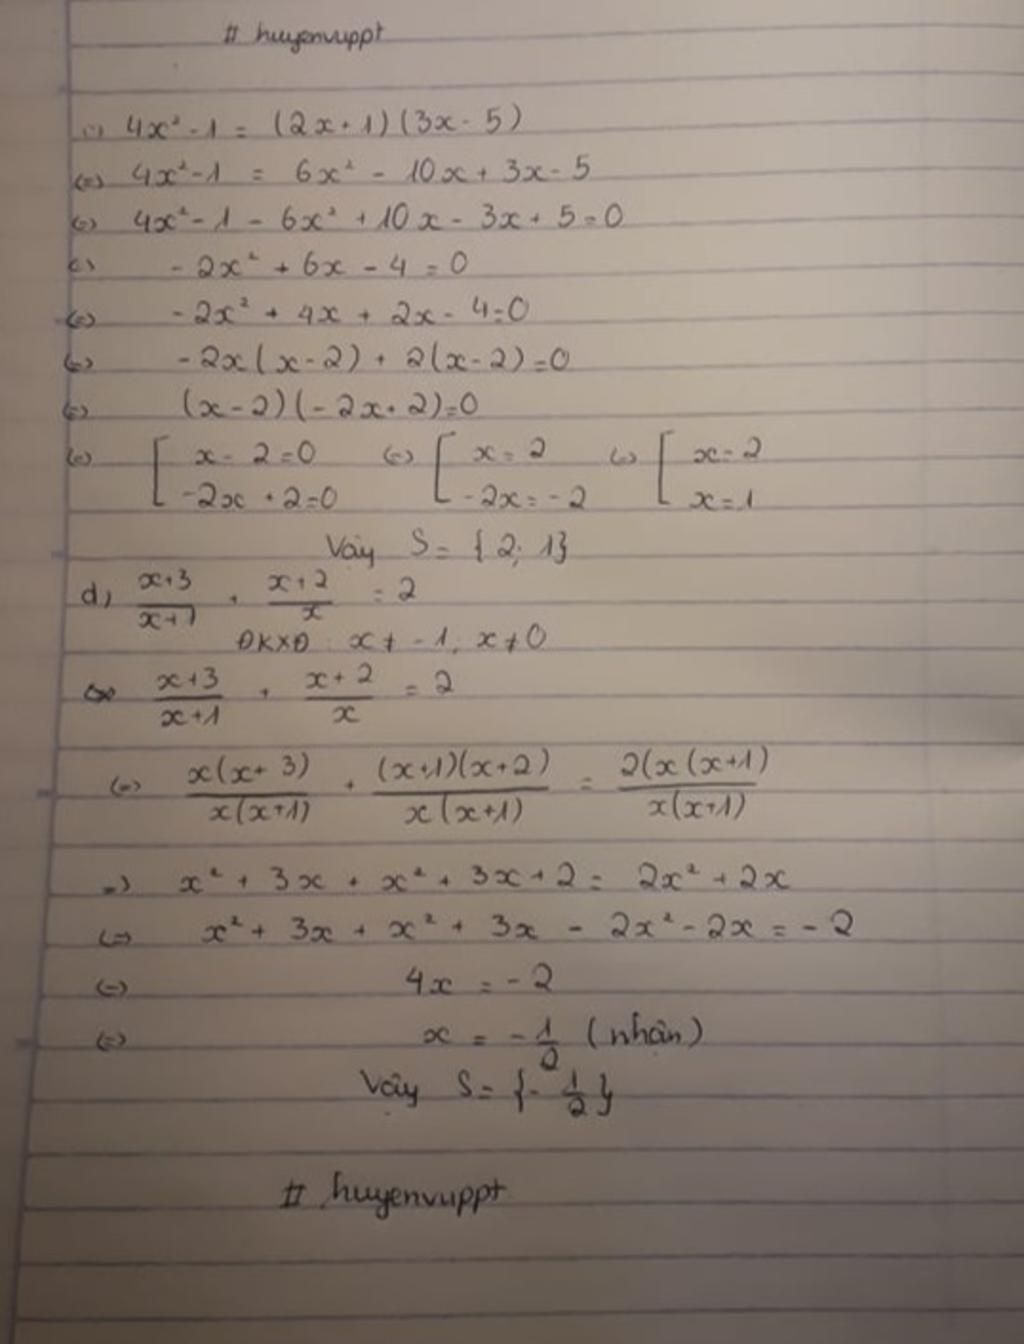 # huyenvuppt
c) 4x² - 1 = (2x + 1)(3x - 5)
(=) 4x² - 1 = 6x² - 10x + 3x - 5
(=) 4x² - 1 - 6x² + 10x - 3x + 5 = 0
(=) - 2x² + 6x - 4 = 0
(=) - 2x² + 4x + 2x - 4 = 0
(=) - 2x(x - 2) + 2(x - 2) = 0
(=) (x - 2)(- 2x + 2) = 0
(=) [ x - 2 = 0 (=) [ x = 2 (=) [ x = 2
-2x + 2 = 0 -2x = -2 x = 1
Vậy S = {2; 1}
d) (x+3)/(x+1) + (x+2)/x = 2
ĐKXĐ: x ≠ -1; x ≠ 0
(=) (x+3)/(x+1) + (x+2)/x = 2
(=) x(x+3)/x(x+1) + (x+1)(x+2)/x(x+1) = 2(x(x+1)/x(x+1)
=) x² + 3x + x² + 3x + 2 = 2x² + 2x
(=) x² + 3x + x² + 3x - 2x² - 2x = - 2
(=) 4x = - 2
(=) x = - 1/2 (nhận)
Vậy S = {- 1/2}
# huyenvuppt